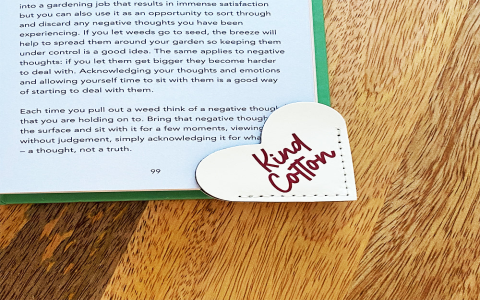 into a gardening job that results in immense satisfaction
but you can also use it as an opportunity to sort through
and discard any negative thoughts you have been
experiencing. If you let weeds go to seed, the breeze will
help to spread them around your garden so keeping them
under control is a good idea. The same applies to negative
thoughts: if you let them get bigger they become harder
to deal with. Acknowledging your thoughts and emotions
and allowing yourself time to sit with them is a good way
of starting to deal with them.
Each time you pull out a weed think of a negative though
that you are holding on to. Bring that negative though
the surface and sit with it for a few moments, viewing
without judgement, simply acknowledging it for wha
– a thought, not a truth.
99
Kind
Cotton